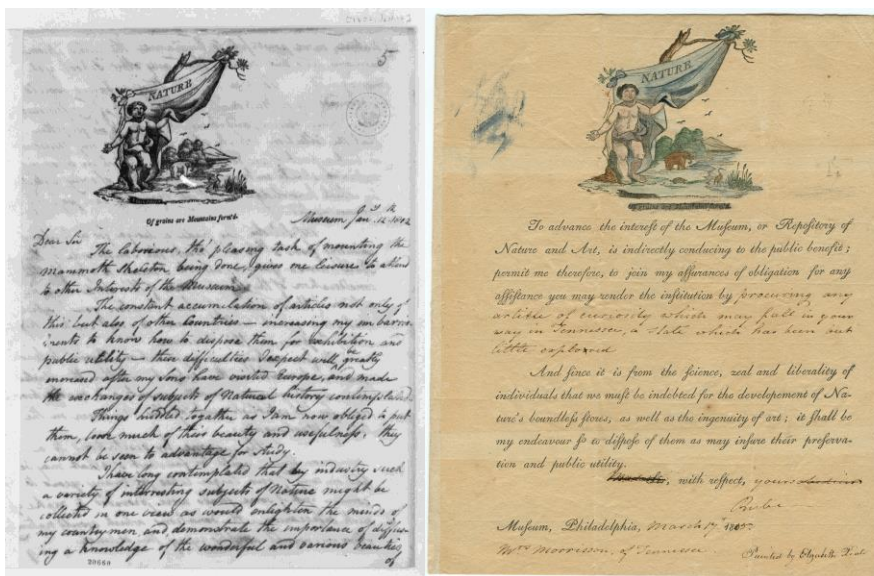 5
NATURE
Of grains are Mountains form'd.
Museum Jan. 12th 1802
Dear Sir
The laborious, tho' pleasing task of mounting the
mammoth Skeleton being done, gives me leisure to attend
to other Interests of the Museum.
The constant accumulation of articles not only of
this but also of other Countries — increasing my embarras-
ments to know how to dispose them for exhibition and
public utility — these difficulties I expect will be greatly
increased after my Sons have visited Europe, and made
the exchanges of subjects of Natural history contemplated.
Things huddled together as I am now obliged to put
them, loose much of their beauty and usefulness, they
cannot be seen to advantage for study.
I have long contemplated that by industry such
a variety of interesting subjects of Nature might be
collected in one view as would enlighten the minds of
my countrymen and demonstrate the importance of diffus-
ing a knowledge of the wonderful and various beauties
of
NATURE
Of grains are Mountains form'd
To advance the intereſt of the Muſeum, or Repoſitory
of Nature and Art, is indirectly conducing to the public benefit ;
permit me therefore, to join my aſſurances of obligation for any
aſſiſtance you may render the inſtitution by procuring any
article of curiosity which may fall in your
way in Tennessee, a state which has been but
little explored
And ſince it is from the ſcience, zeal and liberality of
individuals that we muſt be indebted for the developement of Na-
ture's boundleſs ſtores, as well as the ingenuity of art ; it ſhall be
my endeavour ſo to diſpoſe of them as may inſure their preſerva-
tion and public utility.
with reſpect, yours
Rube
Muſeum, Philadelphia, March 17
Mrs Morrisson, of Tennessee.
Painted by Elizabeth Peale